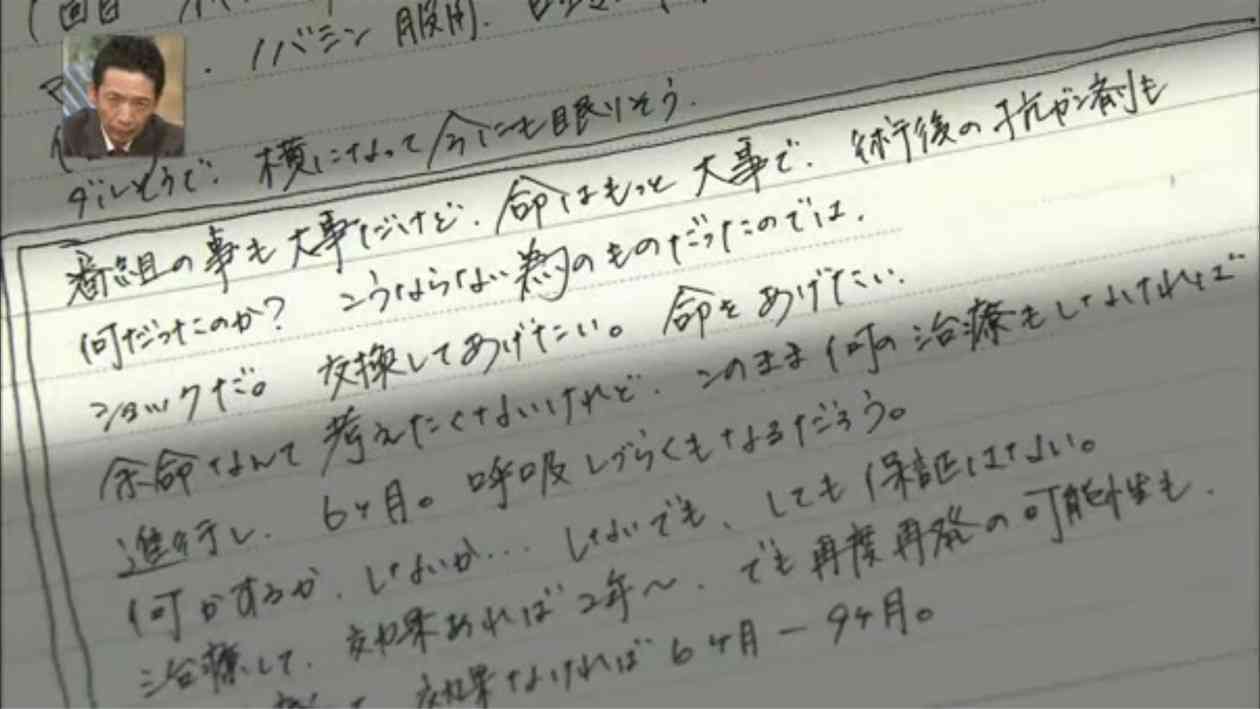 1回目
ノバミン 服用.
ダルそうで、横になって今にも眠りそう.
番組の事も大事だけど、命はもっと大事で、術後の抗ガン剤も
何だったのか? こうならない為のものだったのでは.
ショックだ。交換してあげたい。命をあげたい.
余命なんて考えたくないけれど、このまま何の治療もしなければ
進行し、6ヶ月。呼吸しづらくもなるだろう。
何かするか、しないか... しないでも、しても保証はない。
治療して、効果あれば2年〜、でも再度再発の可能性も.
効果なければ6ヶ月ー9ヶ月。